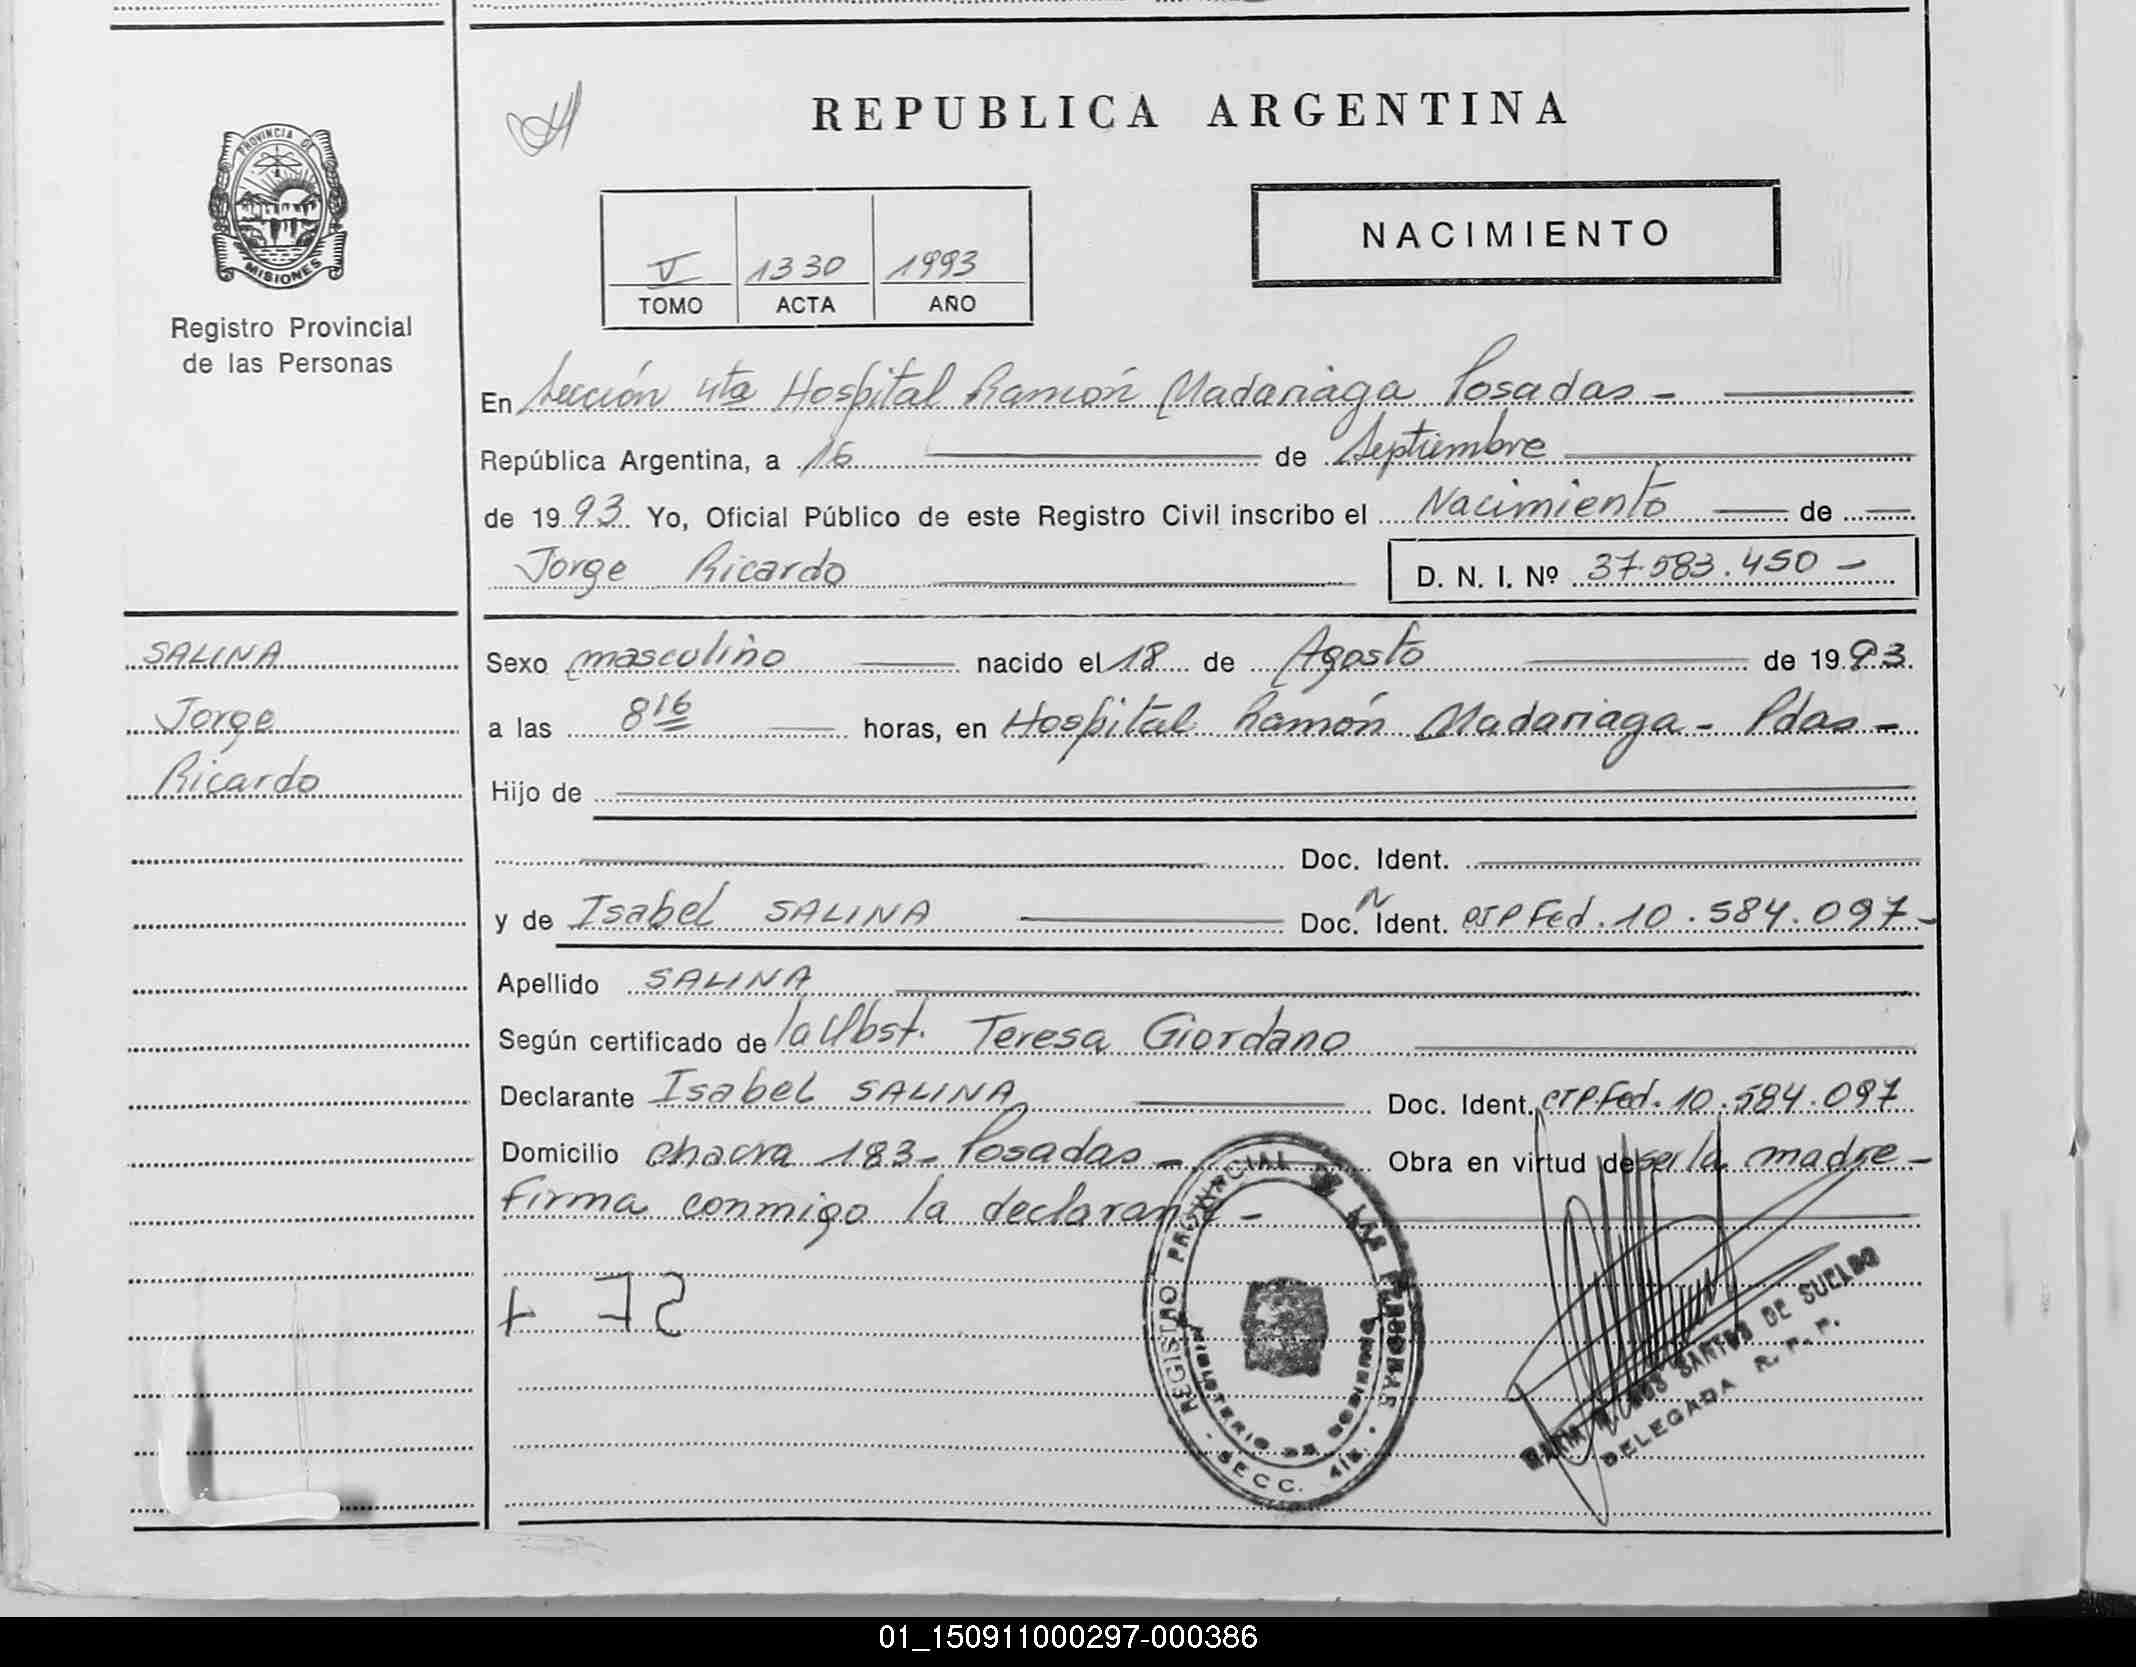 REPUBLICA ARGENTINA
PROVINCIA DE
MISIONES
Registro Provincial
de las Personas
V 1330 1993
TOMO ACTA AÑO
NACIMIENTO
En Sección 4ta Hospital Ramón Madariaga Posadas -
República Argentina, a 16 de Septiembre
de 1993 Yo, Oficial Público de este Registro Civil inscribo el Nacimiento de
Jorge Ricardo D. N. I. Nº 37.583.450 -
SALINA
Jorge
Ricardo
Sexo masculino nacido el 18 de Agosto de 1993.
a las 8 16 horas, en Hospital Ramón Madariaga - Pdas -
Hijo de
Doc. Ident.
y de Isabel SALINA Doc. N Ident. Fed. 10.584.097-
Apellido SALINA
Según certificado de la Obst. Teresa Giordano
Declarante Isabel SALINA Doc. Ident. Fed. 10.584.097
Domicilio chacra 183- Posadas - Obra en virtud de ser la madre -
Firma conmigo la declarante -
REGISTRO PROVINCIAL DE LAS PERSONAS
MINISTERIO DE GOBIERNO
- SECC. 4ta. -
SANTOS DE SUELDO
DELEGADA R. P. P.
01_150911000297-000386